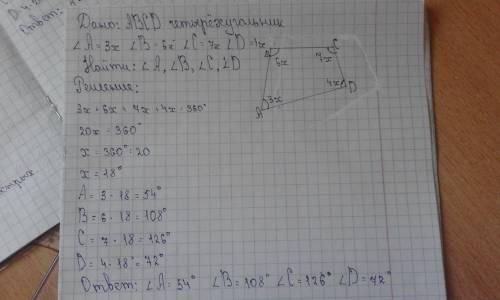 Дано: ABCD четырёхугольник
∠A = 3x ∠B = 6x ∠C = 7x ∠D = 4x
Найти: ∠A, ∠B, ∠C, ∠D
Решение:
3x + 6x + 7x + 4x = 360°
20x = 360°
x = 360° : 20
x = 18°
A = 3 · 18 = 54°
B = 6 · 18 = 108°
C = 7 · 18 = 126°
D = 4 · 18° = 72°
Ответ: ∠A = 54° ∠B = 108° ∠C = 126° ∠D = 72°
C
6x
7x
4x
D
A
3x
Ответ: